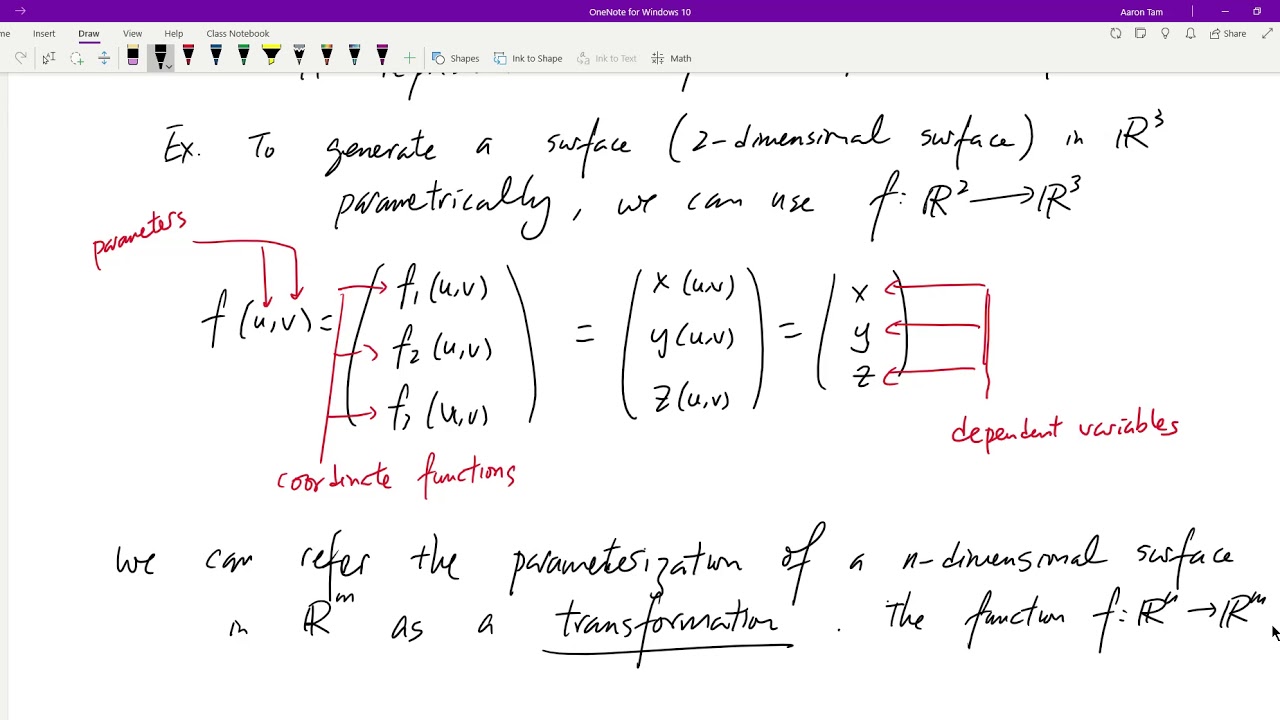 OneNote for Windows 10
Aaron Tam
Insert Draw View Help Class Notebook
Share
Shapes Ink to Shape Ink to Text Math
Ex. To generate a surface (2-dimensional surface) in ℝ³
parametrically, we can use f: ℝ² → ℝ³
parameters
f(u,v) = ( f₁(u,v) ) = ( x(u,v) ) = ( x )
( f₂(u,v) ) ( y(u,v) ) ( y )
( f₃(u,v) ) ( z(u,v) ) ( z )
dependent variables
coordinate functions
We can refer the parameterization of a n-dimensional surface
in ℝᵐ as a transformation. The function f: ℝⁿ → ℝᵐ